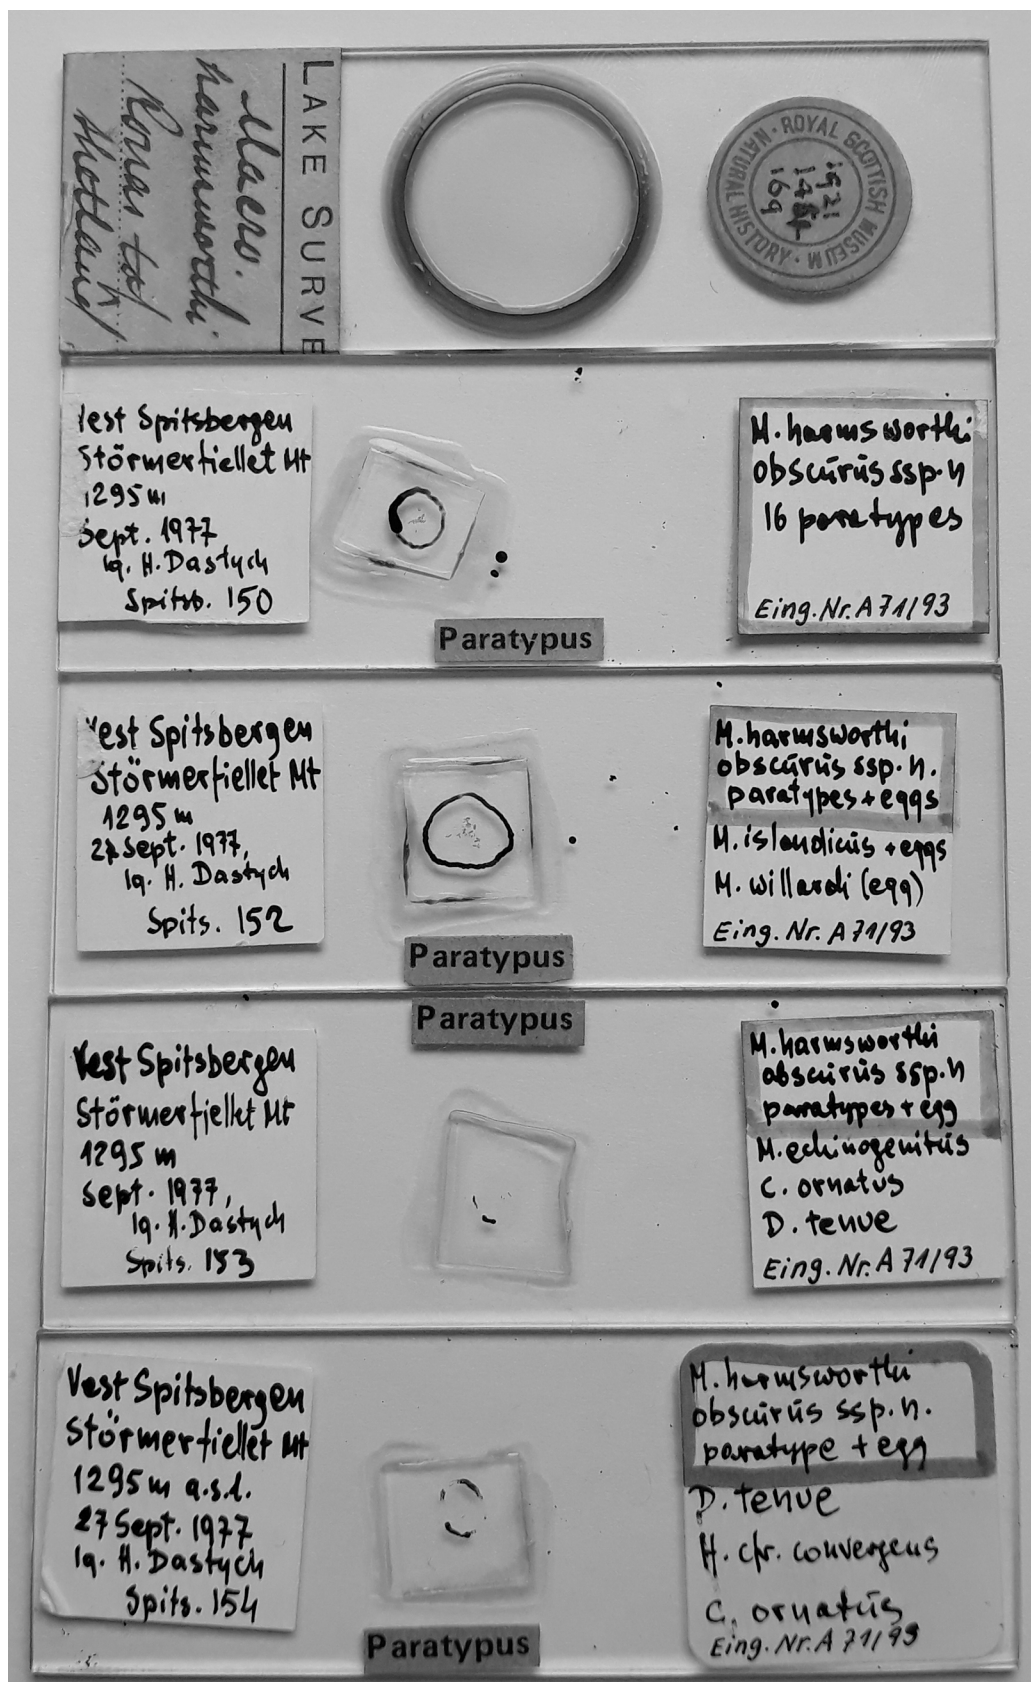 LAKE SURVE
Macro.
harmsworthi
Ronas
Shetland
ROYAL SCOTTISH MUSEUM
NATURAL HISTORY
1921
169
Vest Spitsbergen
Störmerfiellet Mt
1295 m
Sept. 1977
lg. H. Dastych
Spitsb. 150
Paratypus
M. harmsworthi
obscurus ssp. n
16 paratypes
Eing. Nr. A 71/93
Vest Spitsbergen
Störmerfiellet Mt
1295 m
27 Sept. 1977,
lg. H. Dastych
Spits. 152
Paratypus
M. harmsworthi
obscurus ssp. n.
paratypes + eggs
M. islandicus + eggs
M. willardi (egg)
Eing. Nr. A 71/93
Vest Spitsbergen
Störmerfjellet Mt
1295 m
Sept. 1977,
lg. H. Dastych
Spits. 153
Paratypus
M. harmsworthi
obscurus ssp. n
paratypes + egg
M. echinogenitus
C. ornatus
D. tenue
Eing. Nr. A 71/93
Vest Spitsbergen
Störmerfiellet Mt
1295 m a.s.l.
27 Sept. 1977
lg. H. Dastych
Spits. 154
Paratypus
M. harmsworthi
obscurus ssp. n.
paratype + egg
D. tenue
H. cfr. convergens
C. ornatus
Eing. Nr. A 71/93